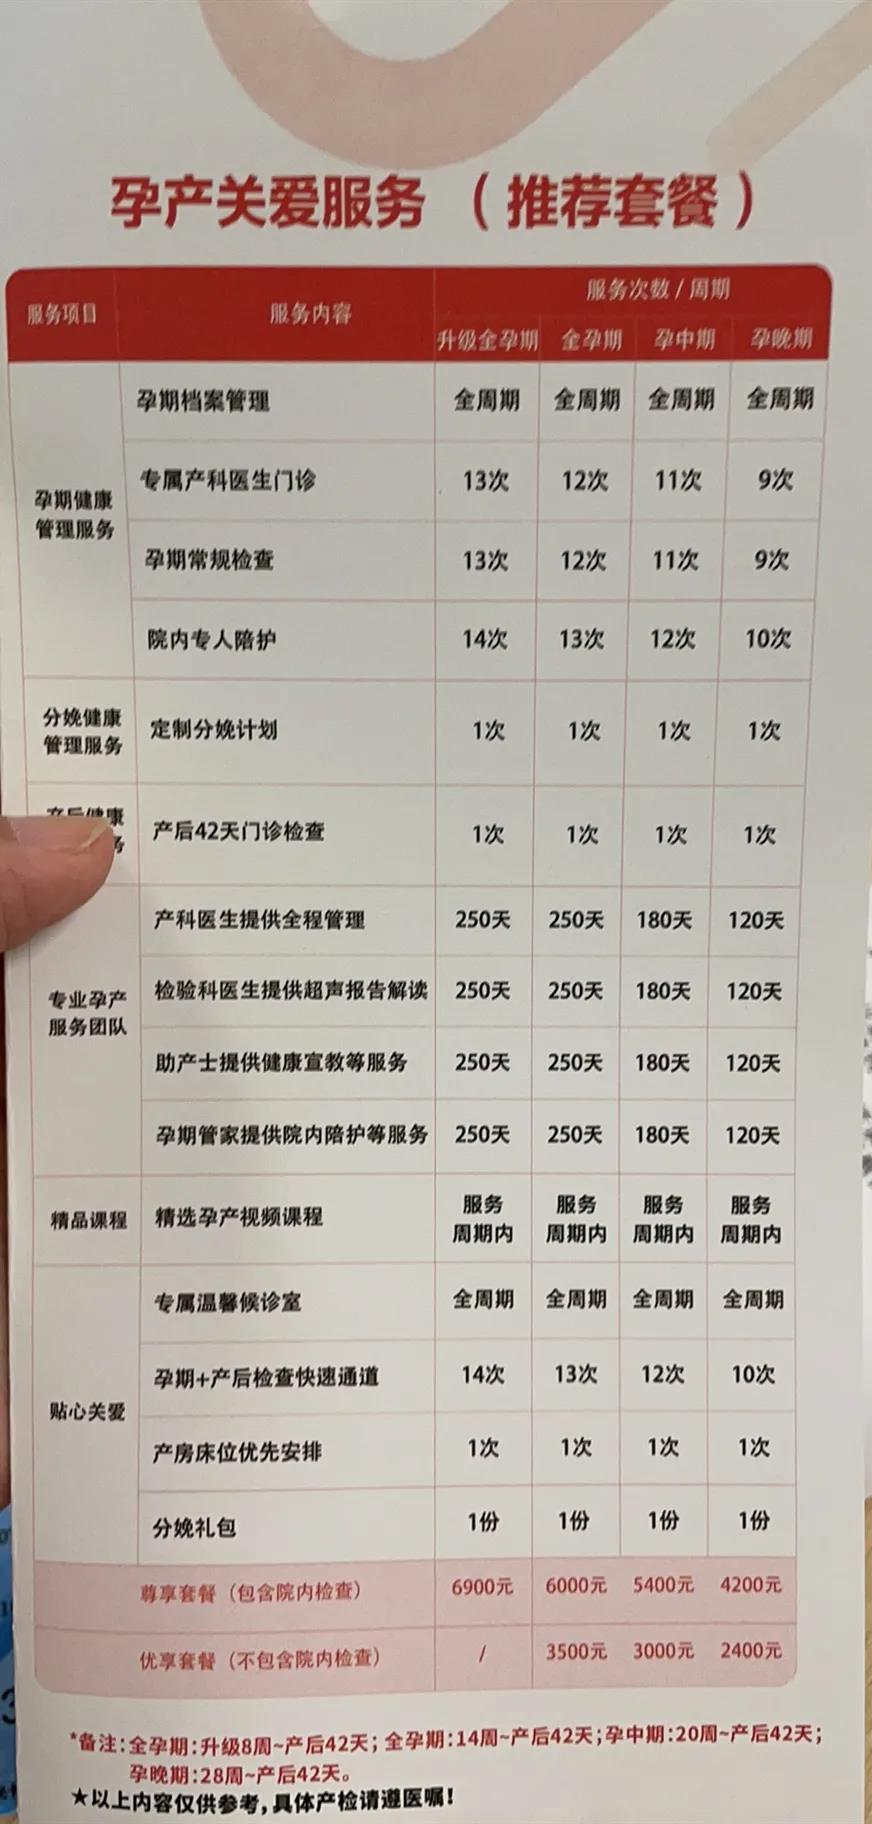 孕产关爱服务（推荐套餐）
服务项目 服务内容 服务次数 / 周期
升级全孕期 全孕期 孕中期 孕晚期
孕期健康
管理服务
孕期档案管理 全周期 全周期 全周期 全周期
专属产科医生门诊 13次 12次 11次 9次
孕期常规检查 13次 12次 11次 9次
院内专人陪护 14次 13次 12次 10次
分娩健康
管理服务
定制分娩计划 1次 1次 1次 1次
产后健康
务
产后42天门诊检查 1次 1次 1次 1次
专业孕产
服务团队
产科医生提供全程管理 250天 250天 180天 120天
检验科医生提供超声报告解读 250天 250天 180天 120天
助产士提供健康宣教等服务 250天 250天 180天 120天
孕期管家提供院内陪护等服务 250天 250天 180天 120天
精品课程 精选孕产视频课程 服务 服务 服务 服务
周期内 周期内 周期内 周期内
贴心关爱
专属温馨候诊室 全周期 全周期 全周期 全周期
孕期+产后检查快速通道 14次 13次 12次 10次
产房床位优先安排 1次 1次 1次 1次
分娩礼包 1份 1份 1份 1份
尊享套餐（包含院内检查） 6900元 6000元 5400元 4200元
优享套餐（不包含院内检查） / 3500元 3000元 2400元
*备注:全孕期:升级8周~产后42天；全孕期:14周~产后42天;孕中期:20周~产后42天；
孕晚期:28周~产后42天。
★以上内容仅供参考,具体产检请遵医嘱！